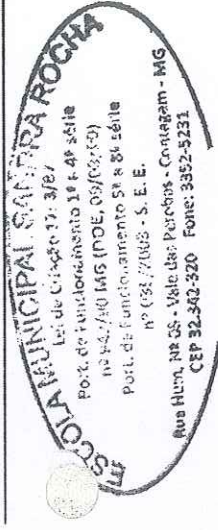 ESCOLA MUNICIPAL SANDRA ROCHA
Lei de Criação
Port. de Funcionamento 1ª à 4ª série
MG (DOE,
Port. de Funcionamento 5ª a 8ª série
- S. E. E.
Rua Hum, Nº 05 - Vale das Perobas - Contagem - MG
CEP 32.341-320 Fone: 3352-5231